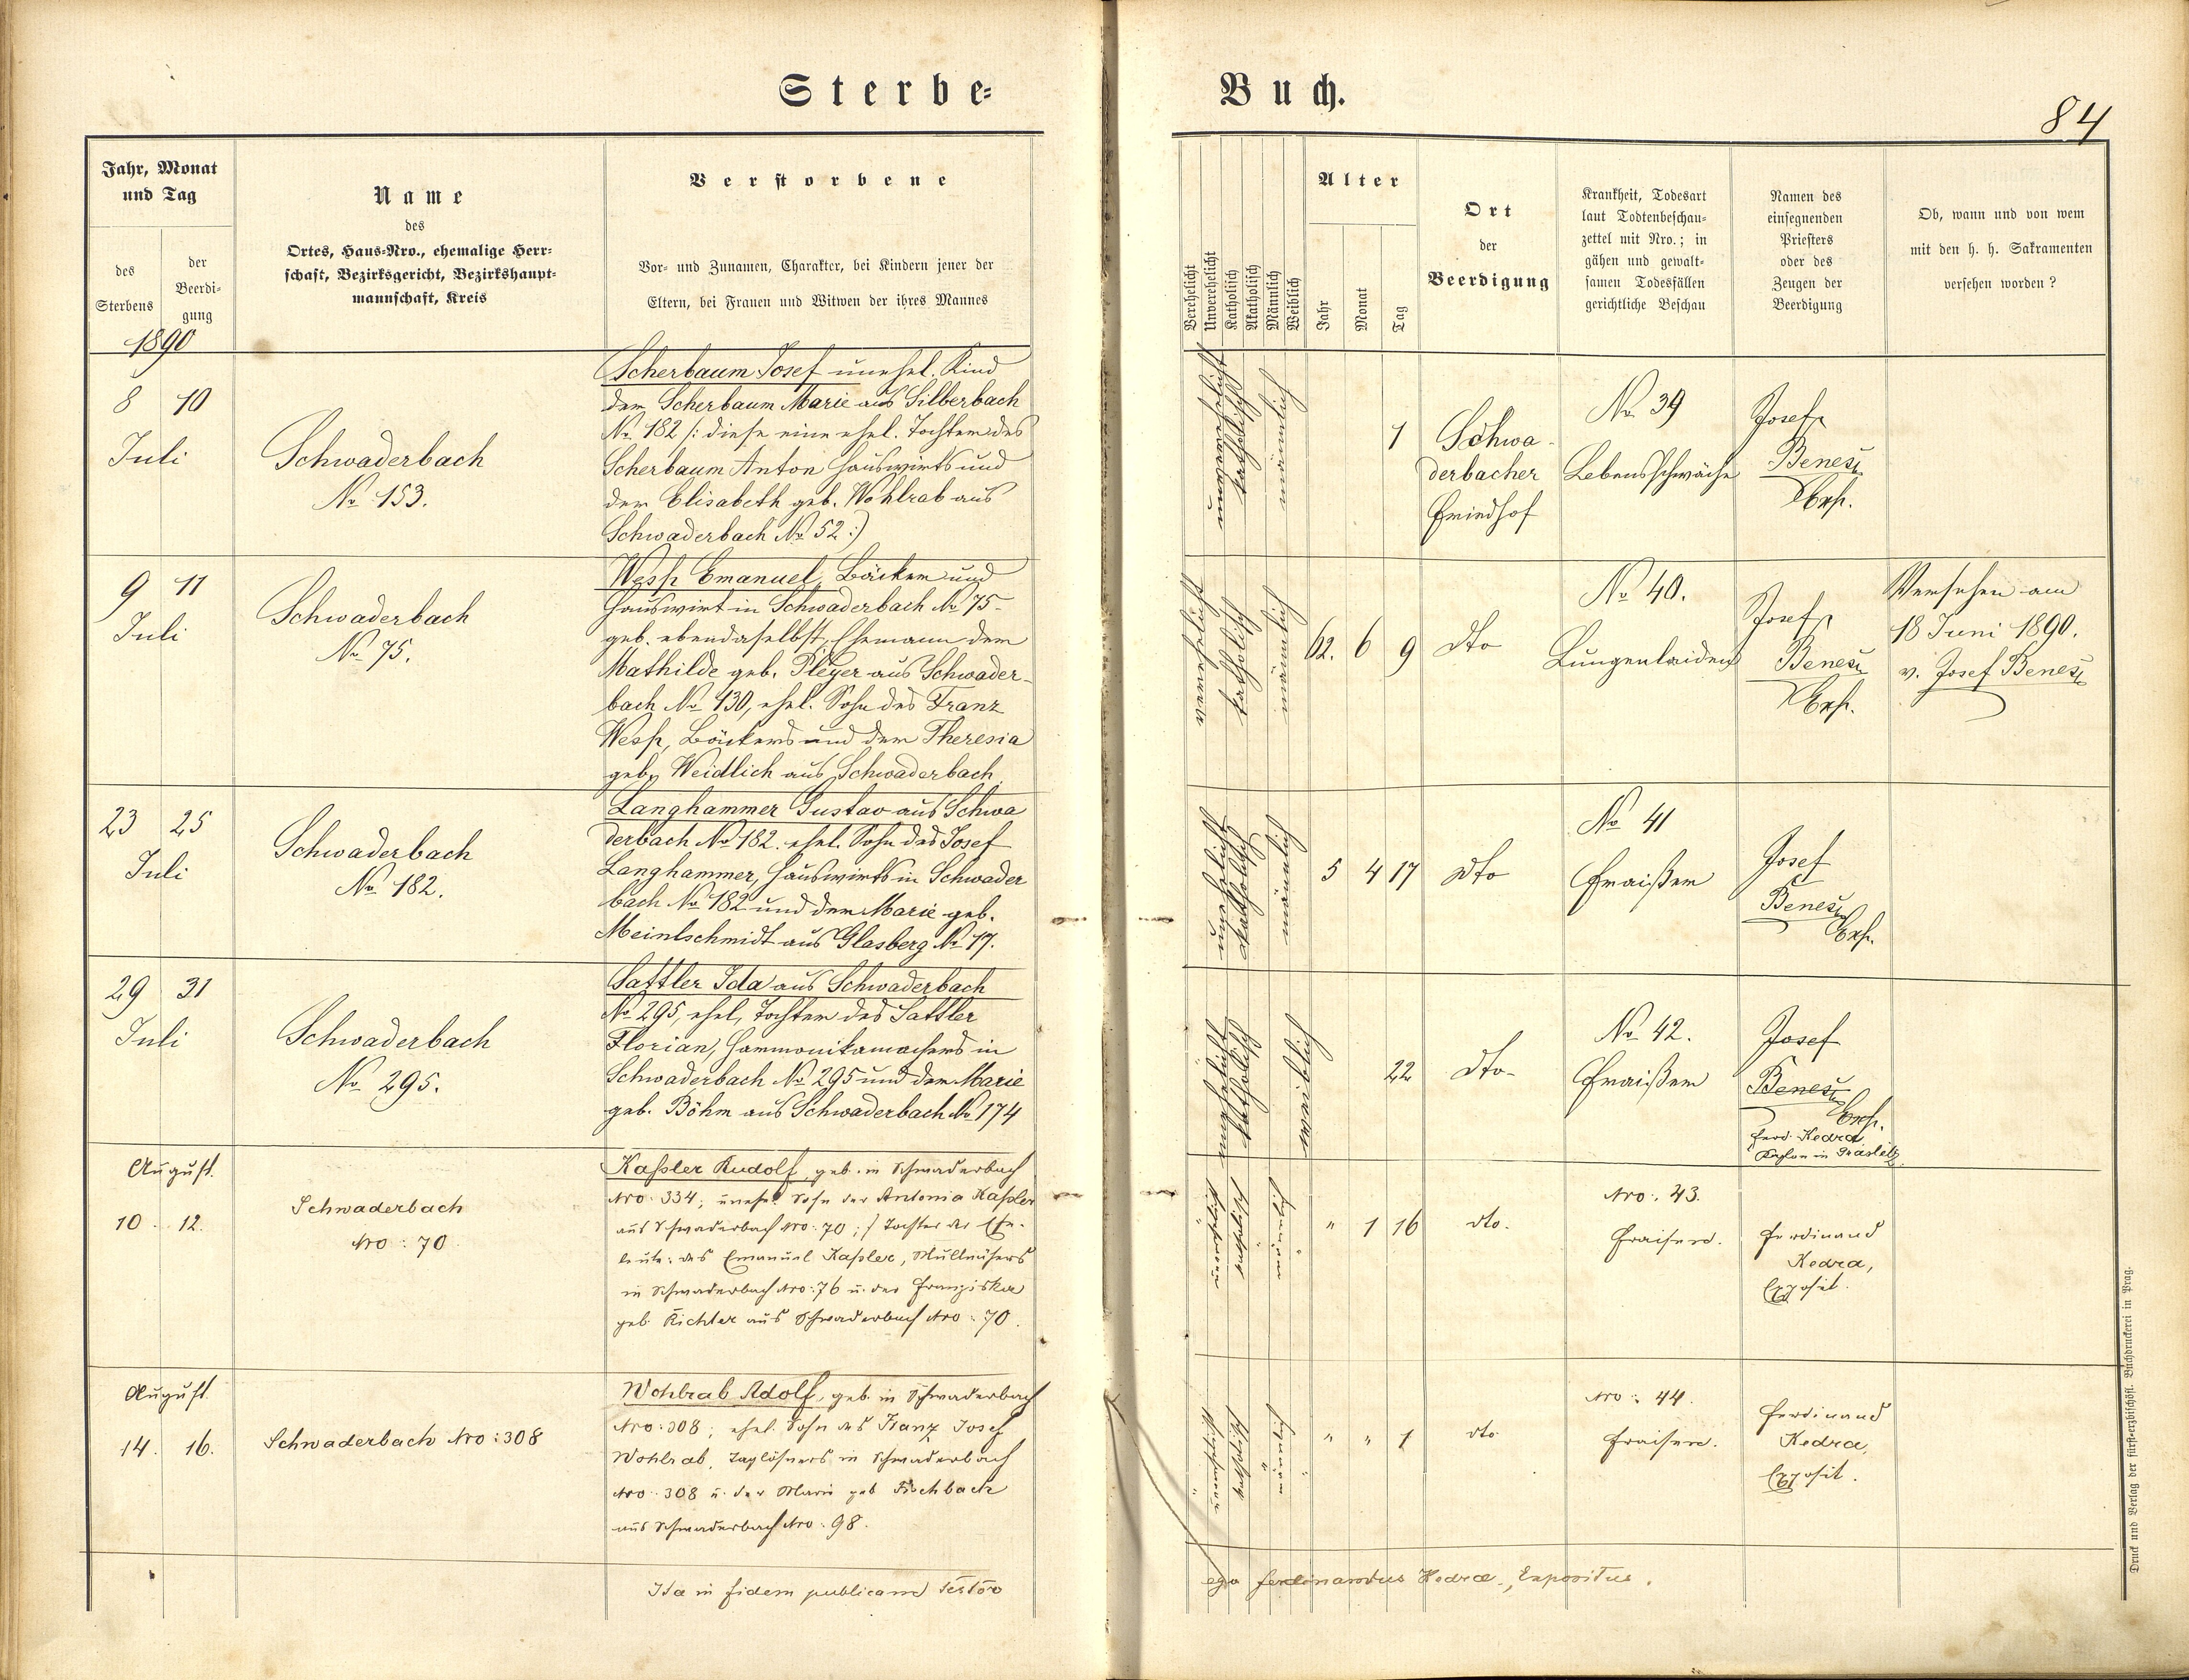 Sterbe-
Buch.
84
Jahr, Monat
und Tag
des
Sterbens
der
Beerdi-
gung
1890
Name
des
Ortes, Haus-Nro., ehemalige Herr-
schaft, Bezirksgericht, Bezirkshaupt-
mannschaft, Kreis
Verstorbene
Vor- und Zunamen, Charakter, bei Kindern jener der
Eltern, bei Frauen und Witwen der ihres Mannes
Verehelicht
Unverehelicht
Katholisch
Akatholisch
Männlich
Weiblich
Alter
Jahr
Monat
Tag
Ort
der
Beerdigung
Krankheit, Todesart
laut Todtenbeschau-
zettel mit Nro.; in
gähen und gewalt-
samen Todesfällen
gerichtliche Beschau
Namen des
einsegnenden
Priesters
oder des
Zeugen der
Beerdigung
Ob, wann und von wem
mit den h. h. Sakramenten
versehen worden?
8 10
Juli
Schwaderbach
No 153.
Scherbaum Josef unehel. Kind
der Scherbaum Marie aus Silberbach
No 182 /: diese eine ehel. Tochter des
Scherbaum Anton Hauswirts und
der Elisabeth geb. Wohlrab aus
Schwaderbach No 52 :)
unverehelicht
katholisch
männlich
1
Schwa-
derbacher
Friedhof
No 39
Lebensschwäche
Josef
Beneš
Exp.
9 11
Juli
Schwaderbach
No 75.
Wesp Emanuel, Bäcker und
Hauswirt in Schwaderbach No 75-
geb. ebendaselbst, Ehemann der
Mathilde geb. Pleyer aus Schwader-
bach No 130, ehel. Sohn des Franz
Wesp, Bäckers und der Theresia
geb. Weidlich aus Schwaderbach
verehelicht
katholisch
männlich
62. 6 9
dto
No 40.
Lungenleiden
Josef
Beneš
Exp.
Versehen am
18 Juni 1890.
v. Josef Beneš
23 25
Juli
Schwaderbach
No 182.
Langhammer Gustav aus Schwa
derbach No 182. ehel. Sohn des Josef
Langhammer, Hauswirts in Schwader
bach No 182 und der Marie geb.
Meinlschmidt aus Glasberg No 17.
katholisch
männlich
5 4 17
dto
No 41
Fraißen
Josef
Beneš
Exp.
29 31
Juli
Schwaderbach
No 295.
Sattler Ida aus Schwaderbach
No 295, ehel. Tochter des Sattler
Florian, Harmonikamachers in
Schwaderbach No 295 und der Marie
geb. Böhm aus Schwaderbach No 174
katholisch
weiblich
22
dto-
No 42.
Fraißen
Josef
Beneš
Exp.
Ferd. Kedra
Kaplan in Graslitz
August.
10. 12.
Schwaderbach
Nro: 70
Kaßler Rudolf, geb. in Schwaderbach
Nro: 334; unehel. Sohn der Antonia Kaßler
aus Schwaderbach Nro: 70; / Tochter der Ehe-
leute: des Emanuel Kaßler,
in Schwaderbach Nro: 76 u. der Franziska
geb. Richter aus Schwaderbach Nro: 70.
unverehelicht
katholisch
männlich
" 1 16
dto.
Nro: 43.
Fraisen.
Ferdinand
Kedra,
Exposit.
August.
14. 16.
Schwaderbach Nro: 308
Wohlrab Adolf, geb. in Schwaderbach
Nro: 308; ehel. Sohn des Franz Josef
Wohlrab, Taglöhners in Schwaderbach
Nro: 308 u. der Marie geb. Fischbach
aus Schwaderbach Nro: 98.
unverehelicht
katholisch
männlich
" " 1
dto.
Nro: 44.
Fraisen.
Ferdinand
Kedra,
Exposit.
Ita in fidem publicam testor
ego Ferdinandus Kedra, Expositus.
Druck und Verlag der fürst-erzbischöfl. Buchdruckerei in Prag.